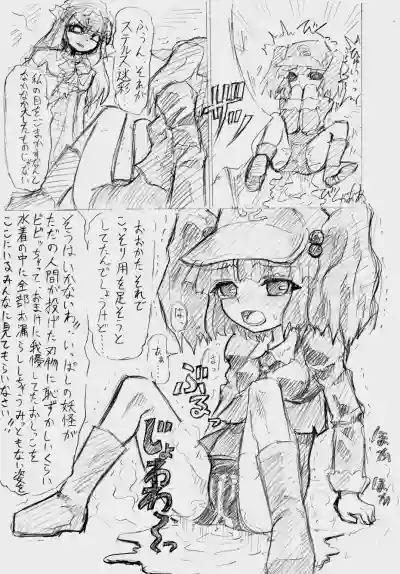 ふぅん、それが
ステルス迷彩
私の目をごまかすなんて
なかなか大したものじゃない
おおかたそれで
こっそり用を足そうと
してたんでしょうけど…
そうはいかないわ!!いっぱしの妖怪が
ただの人間が投げた刃物に恥ずかしいくらい
ビビッちゃって、おまけに我慢してたおしっこを
水着の中に全部お漏らししちゃうみっともない姿を
ここにいるみんなに見てもらいなさい!!!
ぶるっ
じょわわ〜っ
ほか
ほか